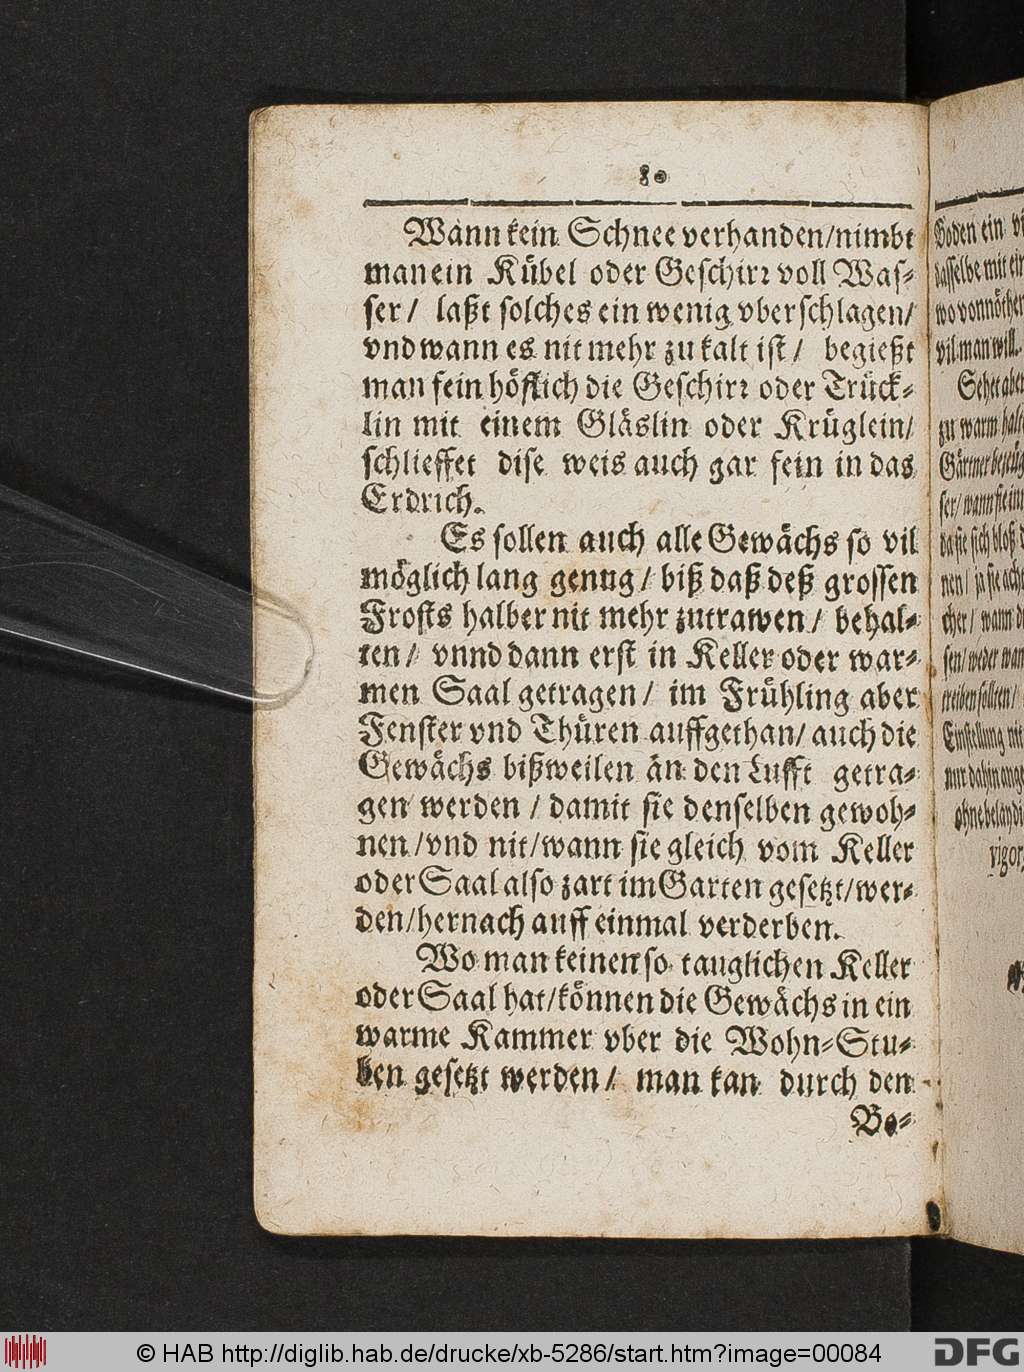 80
Wann kein Schnee verhanden/nimbt
man ein Kübel oder Geschirr voll Was-
ser/ laßt solches ein wenig vberschlagen/
vnd wann es nit mehr zu kalt ist/ begießt
man fein höflich die Geschirr oder Trück-
lin mit einem Gläslin oder Krüglein/
schlieffet dise weis auch gar fein in das
Erdrich.
Es sollen auch alle Gewächs so vil
möglich lang genug/ biß daß deß grossen
Frosts halber nit mehr zutrawen/ behal-
ten/ vnnd dann erst in Keller oder war-
men Saal getragen/ im Frühling aber
Fenster vnd Thüren auffgethan/ auch die
Gewächs bißweilen an den Lufft getra-
gen werden / damit sie denselben gewoh-
nen/vnd nit/wann sie gleich vom Keller
oder Saal also zart im Garten gesetzt/wer-
den/hernach auff einmal verderben.
Wo man keinen so tauglichen Keller
oder Saal hat/können die Gewächs in ein
warme Kammer vber die Wohn-Stu-
ben gesetzt werden/ man kan durch den
Bo-
Boden ein
dasselbe mit
wo vonnöthen
vil man will.
Sehet aber
zu warm
Gärtner
ser/ wann sie
da sie sich bloß
nen/ ja sie
cher/ wann
sen/ weder
treiben sollten/
Einstellung nit
nur dahin
© HAB http://diglib.hab.de/drucke/xb-5286/start.htm?image=00084
DFG